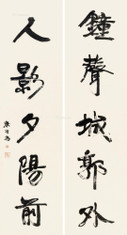 鐘聲城郭外
人影夕陽前